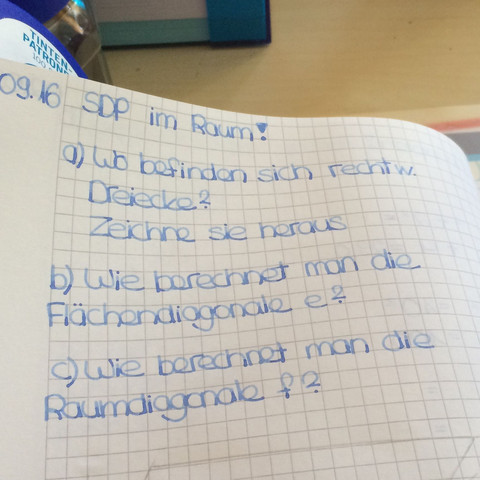 TINTEN-
PATRONE
100
09.16 SDP im Raum!
a) Wo befinden sich rechtw.
Dreiecke?
Zeichne sie heraus
b) Wie berechnet man die
Flächendiagonale e?
c) Wie berechnet man die
Raumdiagonale f?